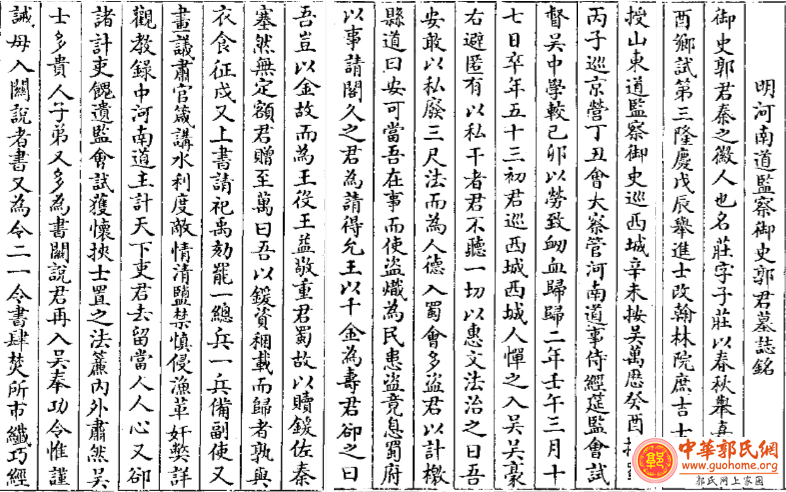 明河南道監察御史郭君墓誌銘
御史郭君秦之徽人也名莊字子莊以春秋舉
酉鄉試第三隆慶戊辰舉進士改翰林院庶吉士
授山東道監察御史巡西城辛未按吳萬曆癸酉
丙子巡京營丁丑會大察管河南道事侍經筵監會試
督吳中學較己卯以勞致衂血歸歸二年壬午三月十
七日卒年五十三初君巡西城西城人憚之入吳吳豪
右避匿有以私干者君不聽一切以惠文法治之曰吾
安敢以私廢三尺法而為人德入蜀會多盜君以計檄
縣道曰安可當吾在事而使盜熾為民患盜竟息蜀府
以事請閣久之君為請得允王以千金為壽君卻之曰
吾豈以金故而為王役王益敬重君蜀故以贖鍰佐秦
塞然無定額君贈至萬曰吾以鍰資稇載而歸者孰與
衣食征戍又上書請祀禹劾罷一總兵一兵備副使又
畫議肅官箴講水利度敵情清鹽禁慎侵漁革奸弊詳
觀教錄中河南道主計天下吏君去留當人人心又卻
諸計吏餽遺監會試獲懷挾士置之法簾內外肅然吳
士多貴人子弟又多為書關說君再入吳奉功令惟謹
誡毋入關說者書又為令二一令書肆焚所市纖巧經
中華郭氏網
www.guohome.org
郭氏网上家園